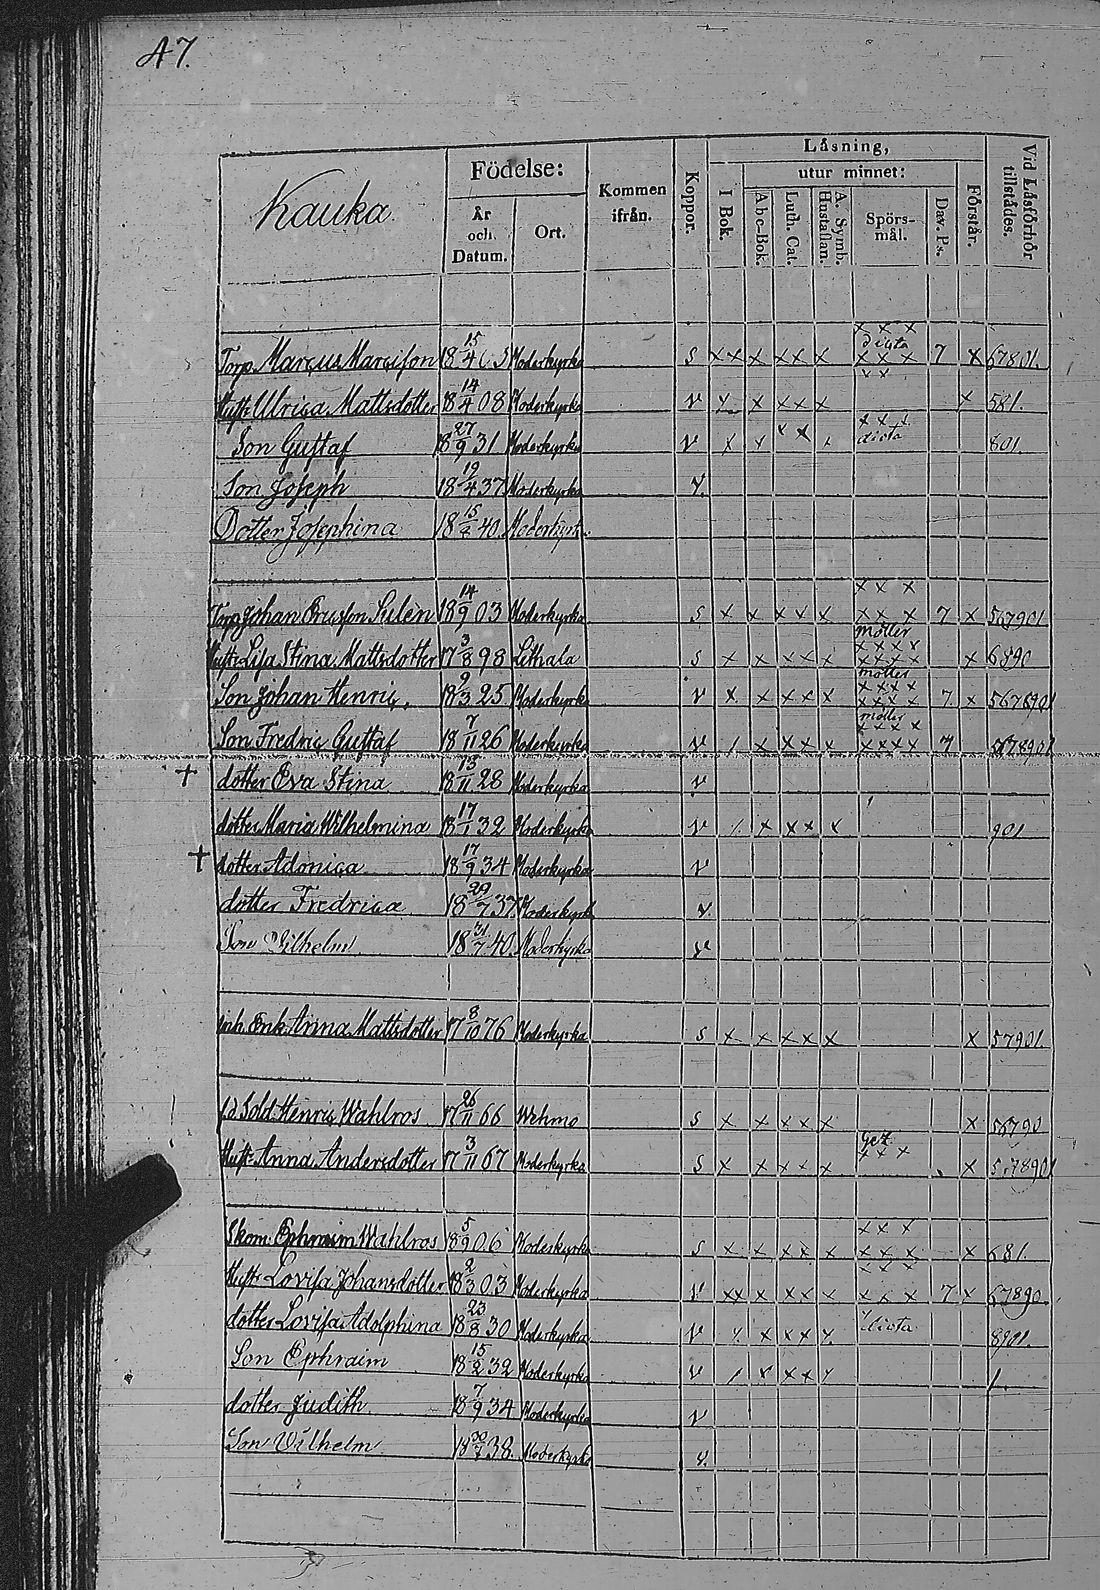 47.
Kauka.
Födelse:
År och. Datum.
Ort.
Kommen ifrån.
Koppor.
Läsning,
utur minnet:
I Bok.
Abc-Bok.
Luth. Cat.
A. Symb. Hustaflan.
Spörs-mål.
Dav. Ps.
Förstår.
Vid Läsförhör tillstädes.
x x x
Torp. Marcus Marcisson 18 15/4 03 Moderkyrka s x x x x x x dicta x x x 7 x 67801.
x x
Hust: Ulrica Mattsdotter 18 14/4 08 Moderkyrka v x x x x x x 581.
Son Gustaf 18 27/9 31 Moderkyrka v x x x x x x x x dicta 801.
Son Joseph 18 19/4 37 Moderkyrka v.
Dotter Josephina 18 15/8 40. Moderkyrka
x x x
Torp Johan Ericsson Sulén 18 14/9 03 Moderkyrka s x x x x x x x x 7 x 567901
Hust: Lisa Stina Mattsdotter 17 3/8 98 Lethala s x x x x x möller x x x x x x x x x 6890
Son Johan Henric. 18 9/3 25. Moderkyrka v x x x x x möller x x x x x x x x 7 x 567890
Son Fredric Gustaf 18 7/11 26 Moderkyrka v / x x x x möller x x x x x x x x 7 567890
† dotter Eva Stina 18 13/11 28 Moderkyrka v
dotter Maria Wilhelmina 18 17/1 32 Moderkyrka v / x x x x 901
† dotter Adonica 18 17/9 34 Moderkyrka v
dotter Fredrica 18 29/7 37 Moderkyrka v
Son Wilhelm 18 31/7 40. Moderkyrka v
inh. Enk. Anna Mattsdotter 17 8/10 76 Moderkyrka s x x x x x x 57901.
fd Sold Henric Wahlros 17 26/11 66 Wehmo s x x x x x x 56790
Hust: Anna Andersdotter 17 3/11 67 Moderkyrka s x x x x x x x x x 578901
x x x
Skom. Ephraim Wahlros 18 5/9 06 Moderkyrka s x x x x x x x x x 681.
x x x
Hust: Lovisa Johansdotter 18 2/3 03 Moderkyrka v x x x x x x x x x 7 x 67890
dotter Lovisa Adolphina 18 23/8 30 Moderkyrka v / x x x x dicta 8901.
Son Ephraim 18 15/2 32 Moderkyrka v / x x x x 1.
dotter Judith 18 7/9 34 Moderkyrka v
Son Wilhelm 18 30/7 38. Moderkyrka v.